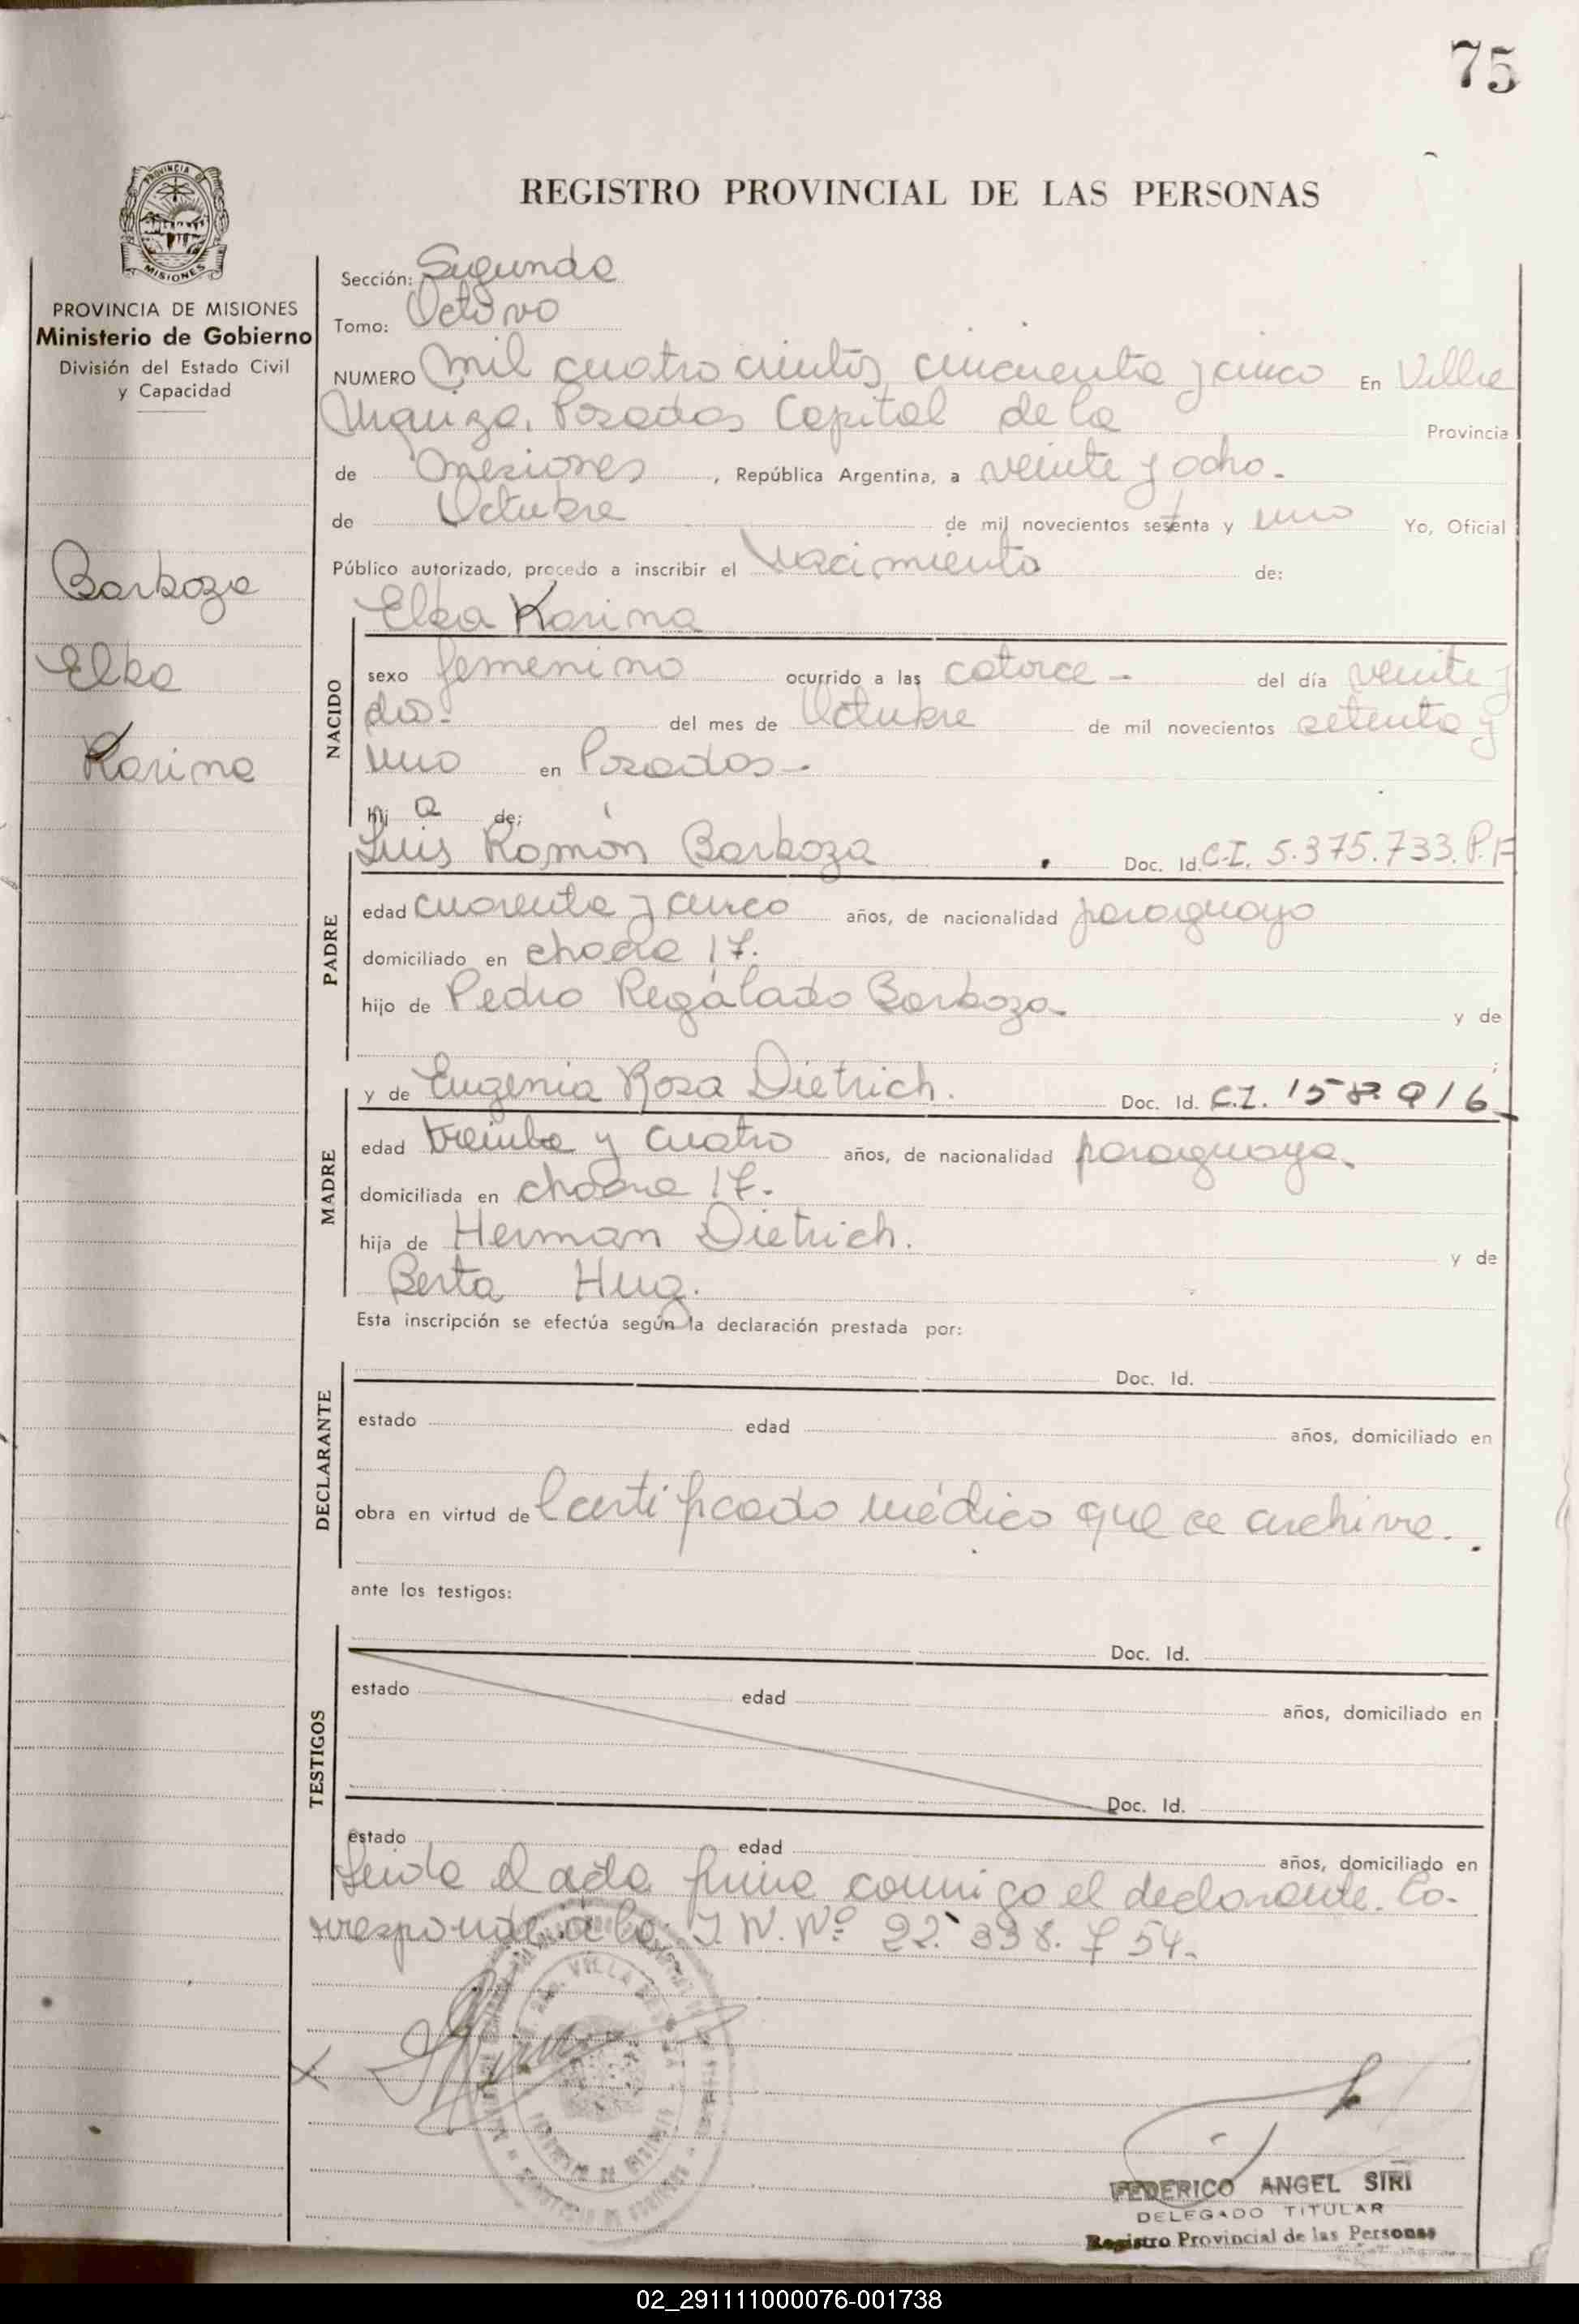 75
PROVINCIA DE
MISIONES
REGISTRO PROVINCIAL DE LAS PERSONAS
PROVINCIA DE MISIONES
Ministerio de Gobierno
División del Estado Civil
y Capacidad
Barboza
Elba
Karina
Sección: Segunda
Tomo: Octavo
NUMERO mil cuatrocientos cincuenta y cinco En Villa
Urquiza, Posadas Capital de la Provincia
de Misiones, República Argentina, a veinte y ocho.
de Octubre de mil novecientos setenta y uno Yo, Oficial
Público autorizado, procedo a inscribir el Nacimiento de:
Elba Karina
NACIDO
sexo femenino ocurrido a las catorce - del día veinte y
dos- del mes de Octubre de mil novecientos setenta y
uno en Posadas-.
hij a de:
Luis Ramón Barboza Doc. Id. C.I. 5.375.733. P.F
PADRE
edad cuarenta y cinco años, de nacionalidad paraguayo
domiciliado en chacra 17.
hijo de Pedro Regalado Barboza- y de
y de Eugenia Rosa Dietrich. Doc. Id. C.I.
MADRE
edad treinta y cuatro años, de nacionalidad paraguaya.
domiciliada en chacra 17.
hija de Herman Dietrich. y de
Berta Hug.
Esta inscripción se efectúa según la declaración prestada por:
DECLARANTE
Doc. Id.
estado edad años, domiciliado en
obra en virtud de Certificado médico que se archiva.
ante los testigos:
TESTIGOS
Doc. Id.
estado edad años, domiciliado en
Doc. Id.
estado edad años, domiciliado en
Leida el acta firma conmigo el declarante. Co-
rresponde a la I.N. Nº 22.338. f 54-
VILLA
FEDERICO ANGEL SIRI
DELEGADO TITULAR
Registro Provincial de las Personas
02_291111000076-001738